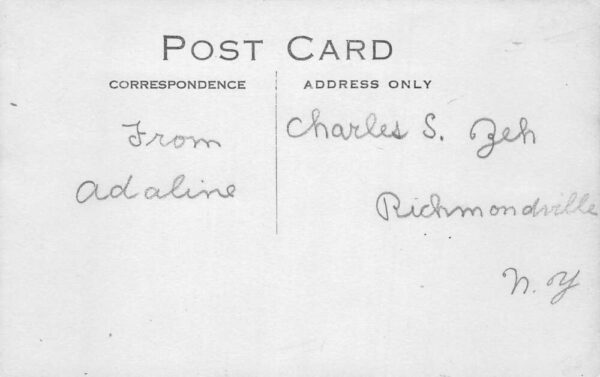 POST CARD
CORRESPONDENCE
ADDRESS ONLY
From
Adaline
Charles S. Zeh
Richmondville
N. Y